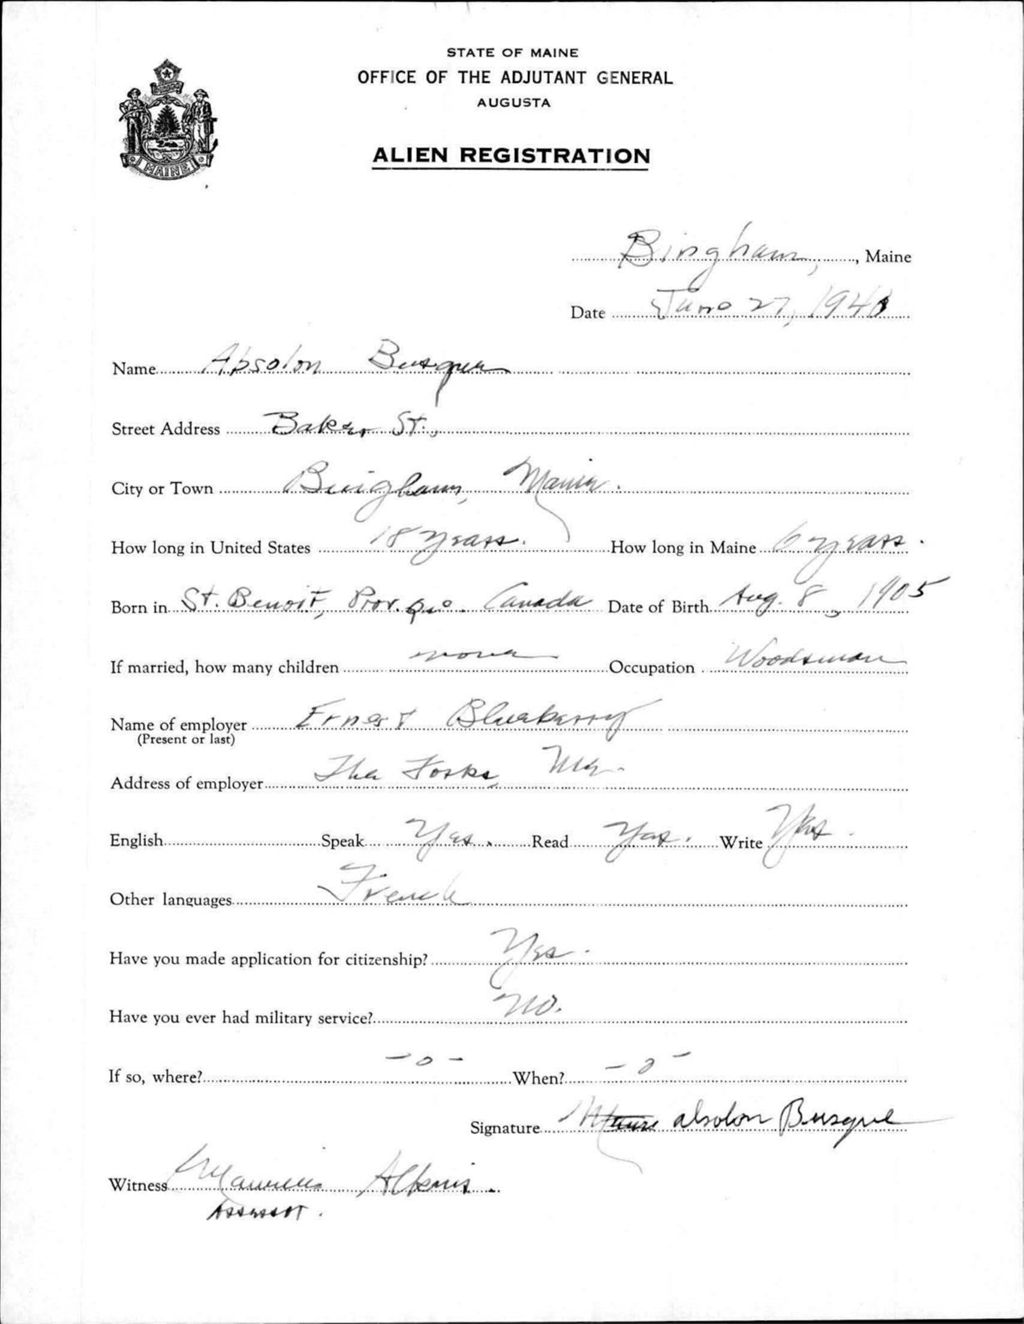 STATE OF MAINE
OFFICE OF THE ADJUTANT GENERAL
AUGUSTA
ALIEN REGISTRATION
MAINE
Bingham, , Maine
Date June 27, 1940
Name Absolon Busque
Street Address Baker St.,
City or Town Bingham, Maine.
How long in United States 18 years. How long in Maine 6 years.
Born in St. Benoit, Prov. Que. Canada Date of Birth Aug. 8, 1905
If married, how many children none Occupation Woodsman
Name of employer Ernest Blueberry
(Present or last)
Address of employer The Forks, Me.
English Speak Yes. Read Yes. Write Yes.
Other languages French
Have you made application for citizenship? Yes.
Have you ever had military service? No.
If so, where? -0- When? -0-
Signature absolon Busque
Witness Maurice
Assessor.